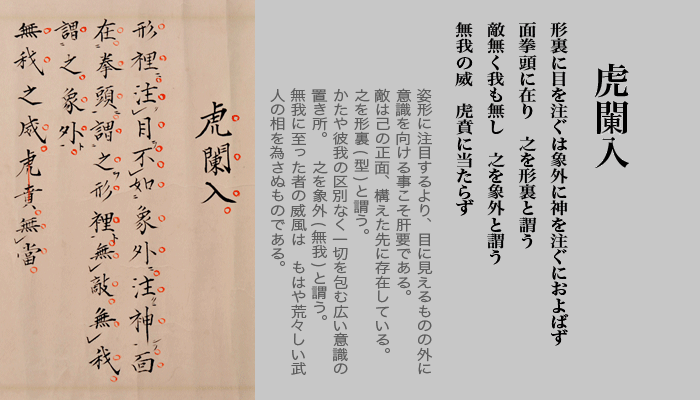 虎闌入
形裏に目を注ぐは象外に神を注ぐにおよばず
面拳頭に在り　之を形裏と謂う
敵無く我も無し　之を象外と謂う
無我の威　虎賁に当たらず
姿形に注目するより、目に見えるものの外に
意識を向ける事こそ肝要である。
敵は己の正面　構えた先に存在している。
之を形裏(型)と謂う。
かたや彼我の区別なく一切を包む広い意識の
置き所。　之を象外(無我)と謂う。
無我に至った者の威風は　もはや荒々しい武
人の相を為さぬものである。
虎闌入
形裡注目不如象外注神面
在拳頭謂之形裡無敵無我
謂之象外
無我之威虎賁無當